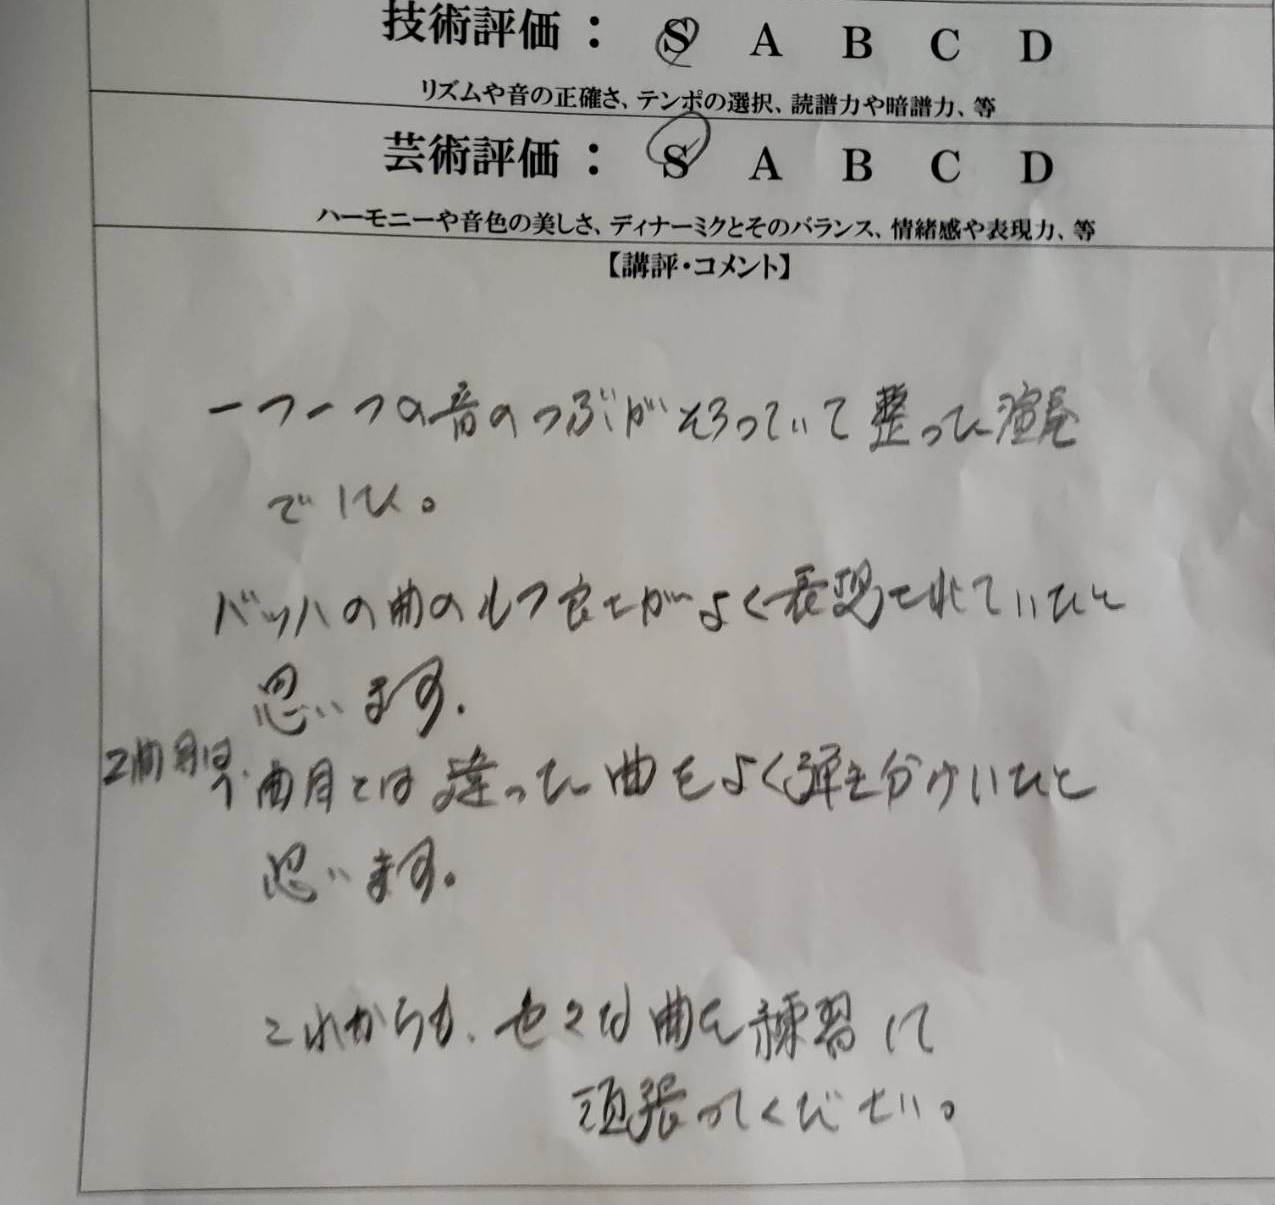 技術評価： S A B C D
リズムや音の正確さ、テンポの選択、読譜力や暗譜力、等
芸術評価： S A B C D
ハーモニーや音色の美しさ、ディナーミクとそのバランス、情緒感や表現力、等
【講評・コメント】
一つ一つの音のつぶがそろっていて整った演奏
でした。
バッハの曲のもつ良さがよく表現されていたと
思います。
2曲目は、
1曲目とは違った曲をよく弾き分けいたと
思います。
これからも、色々な曲を練習して
頑張ってください。